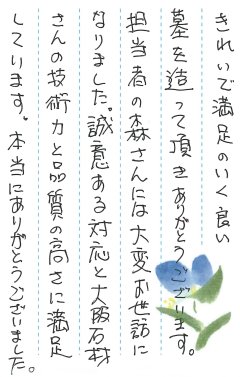 きれいで満足のいく良い
墓を造って頂きありがとうございます。
担当者の森さんには大変お世話に
なりました。誠意ある対応と大阪石材
さんの技術力と品質の高さに満足
しています。本当にありがとうございました。